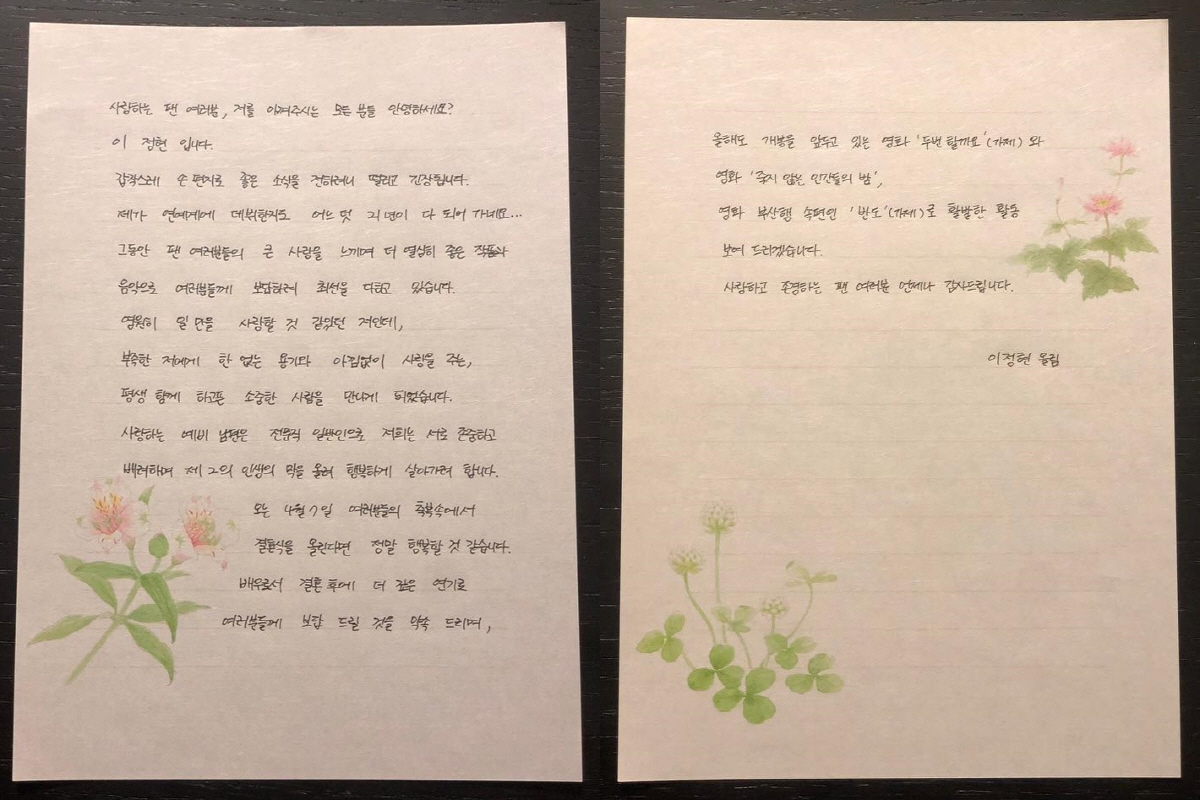 사랑하는 팬 여러분, 저를 아껴주시는 모든 분들 안녕하세요?
이 정현 입니다.
갑작스레 손 편지로 좋은 소식을 전하려니 떨리고 긴장됩니다.
제가 연예계에 데뷔한지도 어느 덧 21년이 다 되어 가네요...
그동안 팬 여러분들의 큰 사랑을 느끼며 더 열심히 좋은 작품과
음악으로 여러분들께 보답하려 최선을 다하고 있습니다.
영원히 일만을 사랑할 것 같았던 저인데,
부족한 저에게 한 없는 용기와 아낌없이 사랑을 주는,
평생 함께 하고픈 소중한 사람을 만나게 되었습니다.
사랑하는 예비 남편은 전문직 일반인으로 저희는 서로 존중하고
배려하며 제 2의 인생의 막을 올려 행복하게 살아가려 합니다.
오는 4월 7일 여러분들의 축복속에서
결혼식을 올린다면 정말 행복할 것 같습니다.
배우로서 결혼 후에 더 깊은 연기로
여러분들께 보답 드릴 것을 약속 드리며,
올해도 개봉을 앞두고 있는 영화 '두번 할까요'(가제)와
영화 '죽지 않는 인간들의 밤',
영화 부산행 속편인 '반도'(가제)로 활발한 활동
보여 드리겠습니다.
사랑하고 존경하는 팬 여러분 언제나 감사드립니다.
이정현 올림